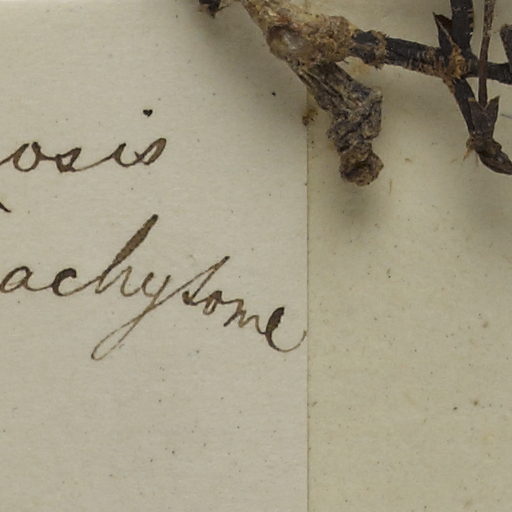 osis
achysome